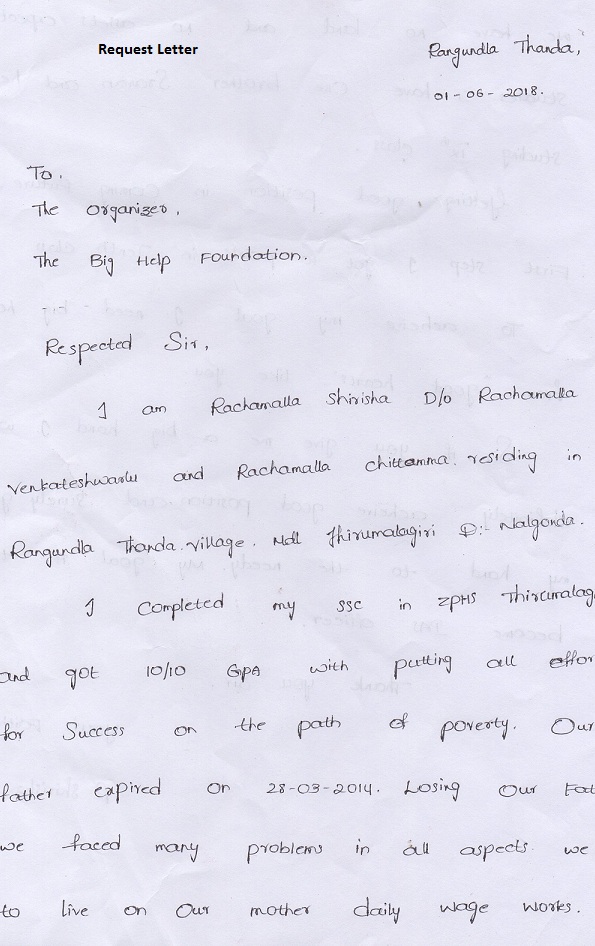 Request Letter
Rangundla Thanda,
01-06-2018.
To,
The Organizer,
The Big Help Foundation.
Respected Sir,
I am Rachamalla Shirisha D/o Rachamalla
Venkateshwarlu and Rachamalla chittamma. residing in
Rangundla Thanda. village. Mdl Thirumalagiri D:- Nalgonda.
I Completed my SSC in ZPHS Thirumalag
and got 10/10 GPA with putting all effor
for Success on the path of poverty. Our
father expired on 28-03-2014. Losing Our Fat
we faced many problems in all aspects. we
to live on Our mother daily wage works.